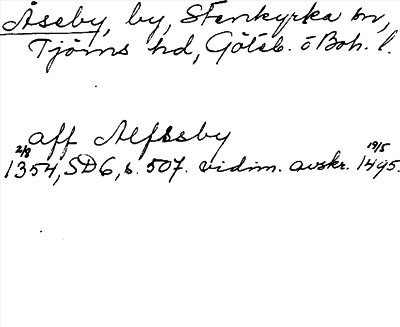 Åseby, by, Stenkyrka sn,
Tjörns hd, Göteb. o Boh. l.
aff Alfssby
2/8 19/5
1354, SD6, s. 507. vidim. avskr. 1495.